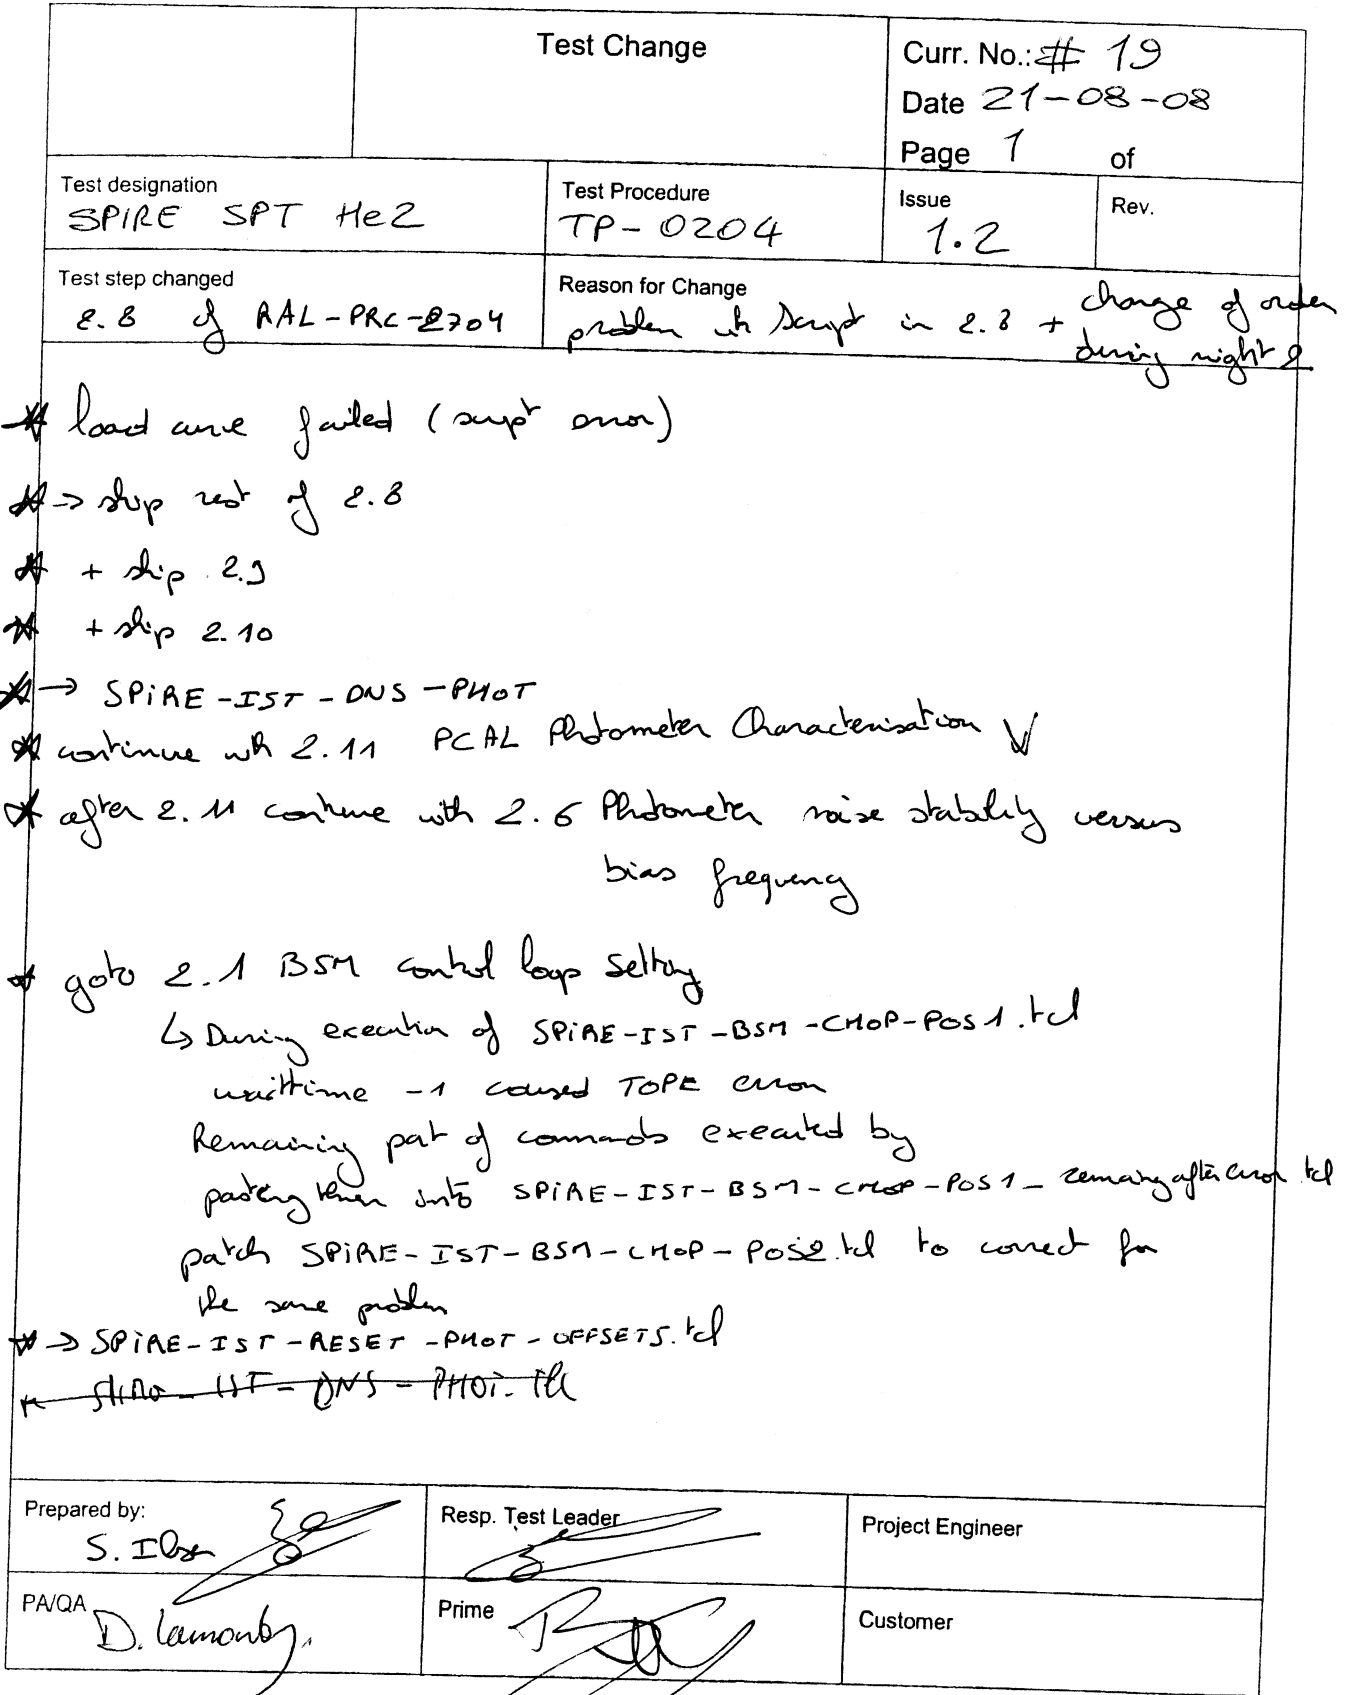 Test Change
Curr. No.: # 19
Date 21-08-08
Page 1 of
Test designation
SPIRE SPT He2
Test Procedure
TP-0204
Issue
1.2
Rev.
Test step changed
2.8 of RAL-PRC-2704
Reason for Change
problem wh script in 2.8 + change of order
during night 2
load curve failed (script error)
-> skip rest of 2.8
+ skip 2.9
+ skip 2.10
→ SPIRE-IST-DNS-PHOT
continue wh 2.11 PCAL Photometer Characterisation √
after 2.11 continue with 2.6 Photometer noise stability versus
bias frequency
goto 2.1 BSM control loop setting
↳ During execution of SPIRE-IST-BSM-CHOP-POS1.tcl
waittime -1 caused TOPE error
Remaining part of commands executed by
pasting them into SPIRE-IST-BSM-CHOP-POS1_remainingaftererror.tcl
patch SPIRE-IST-BSM-CHOP-POS2.tcl to correct for
the same problem
-> SPIRE-IST-RESET-PHOT-OFFSETS.tcl
Prepared by:
S. Ilsen
Resp. Test Leader
Project Engineer
PA/QA
D. Lamonby.
Prime
Customer